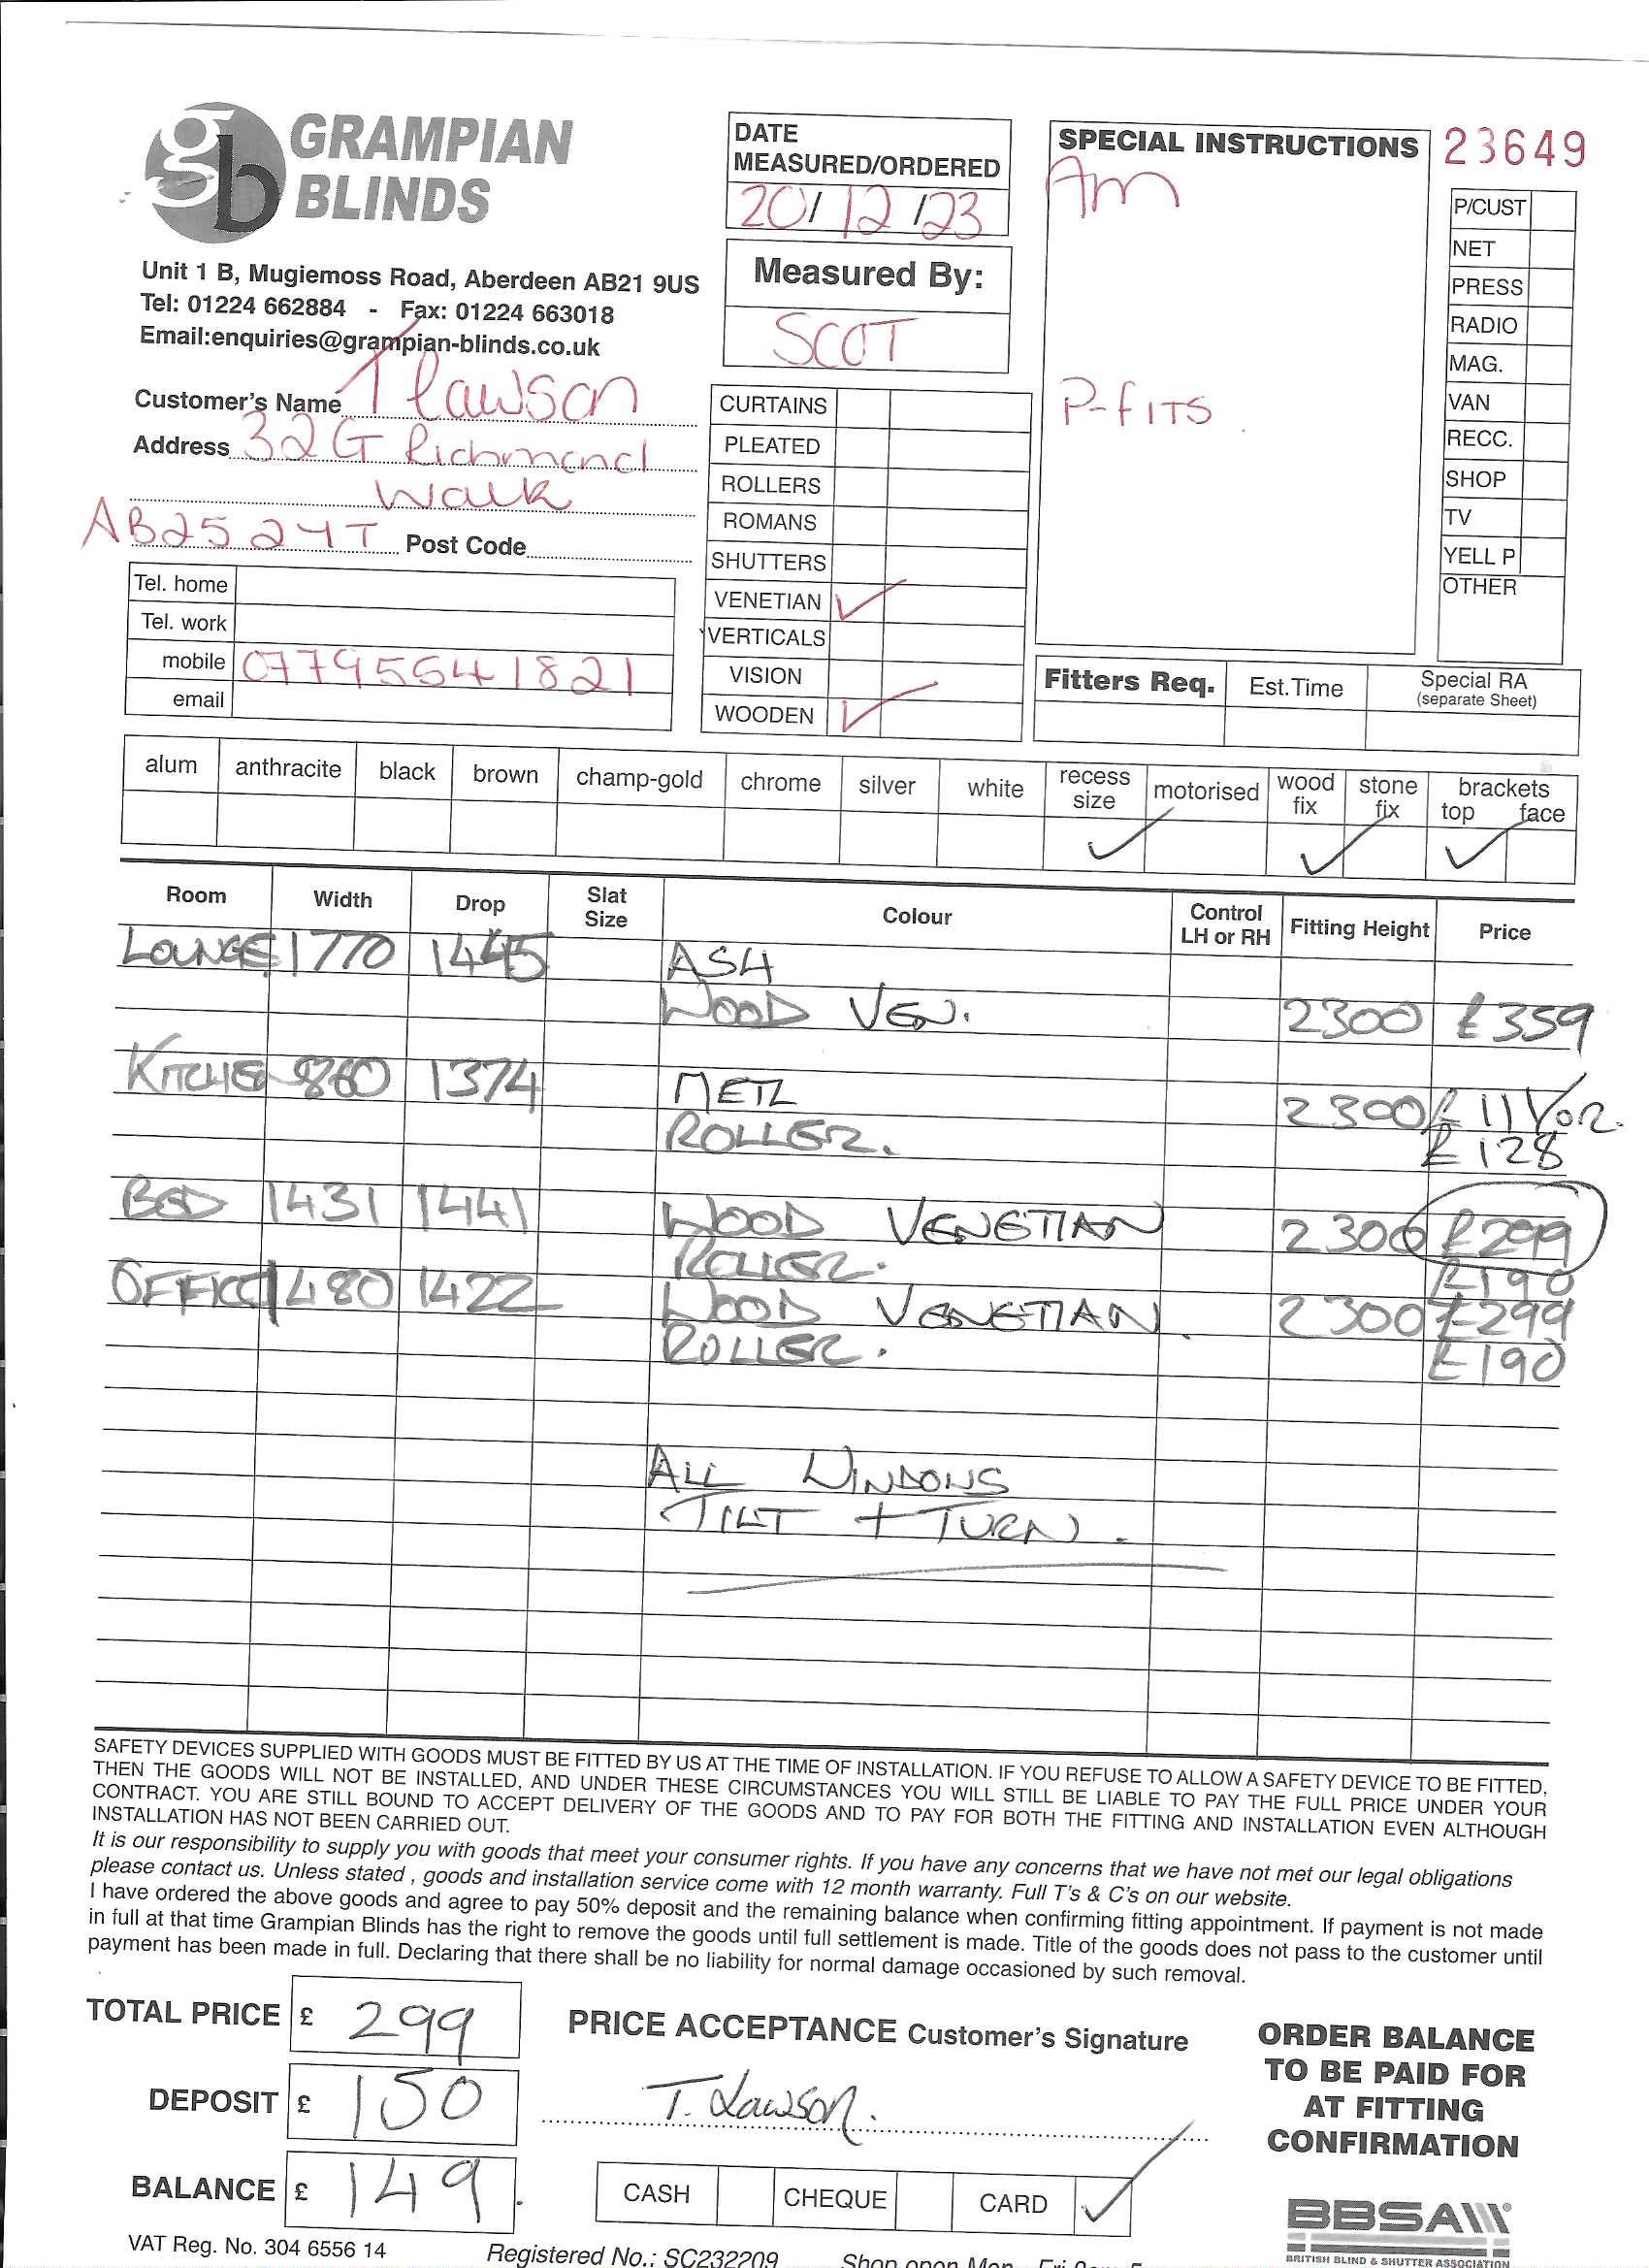 gb GRAMPIAN
BLINDS
Unit 1 B, Mugiemoss Road, Aberdeen AB21 9US
Tel: 01224 662884 - Fax: 01224 663018
Email:enquiries@grampian-blinds.co.uk
DATE
MEASURED/ORDERED
20/12/23
Measured By:
SCOT
SPECIAL INSTRUCTIONS
Am
P-FITS.
23649
P/CUST
NET
PRESS
RADIO
MAG.
VAN
RECC.
SHOP
TV
YELL P
OTHER
Customer's Name T Lawson
Address 32G Richmond
Walk
AB25 24T Post Code
Tel. home
Tel. work
mobile 07795541821
email
CURTAINS
PLEATED
ROLLERS
ROMANS
SHUTTERS
VENETIAN ✓
VERTICALS
VISION
WOODEN ✓
Fitters Req. Est.Time Special RA
(separate Sheet)
alum anthracite black brown champ-gold chrome silver white recess size motorised wood fix stone fix brackets top face
✓ ✓ ✓
Room Width Drop Slat Size Colour Control LH or RH Fitting Height Price
LOUNGE 1770 1445 ASH
WOOD VEN. 2300 £359
KITCHEN 860 1374 METL 2300 £111 OR.
ROLLER. £128
BED 1431 1441 WOOD VENETIAN 2300 £299
ROLLER. £190
OFFICE 1480 1422 WOOD VENETIAN. 2300 £299
ROLLER. £190
ALL WINDOWS
TILT + TURN.
SAFETY DEVICES SUPPLIED WITH GOODS MUST BE FITTED BY US AT THE TIME OF INSTALLATION. IF YOU REFUSE TO ALLOW A SAFETY DEVICE TO BE FITTED,
THEN THE GOODS WILL NOT BE INSTALLED, AND UNDER THESE CIRCUMSTANCES YOU WILL STILL BE LIABLE TO PAY THE FULL PRICE UNDER YOUR
CONTRACT. YOU ARE STILL BOUND TO ACCEPT DELIVERY OF THE GOODS AND TO PAY FOR BOTH THE FITTING AND INSTALLATION EVEN ALTHOUGH
INSTALLATION HAS NOT BEEN CARRIED OUT.
It is our responsibility to supply you with goods that meet your consumer rights. If you have any concerns that we have not met our legal obligations
please contact us. Unless stated , goods and installation service come with 12 month warranty. Full T's & C's on our website.
I have ordered the above goods and agree to pay 50% deposit and the remaining balance when confirming fitting appointment. If payment is not made
in full at that time Grampian Blinds has the right to remove the goods until full settlement is made. Title of the goods does not pass to the customer until
payment has been made in full. Declaring that there shall be no liability for normal damage occasioned by such removal.
TOTAL PRICE £ 299
DEPOSIT £ 150
BALANCE £ 149.
PRICE ACCEPTANCE Customer's Signature
T. Lawson.
CASH CHEQUE CARD ✓
ORDER BALANCE
TO BE PAID FOR
AT FITTING
CONFIRMATION
BBSA
BRITISH BLIND & SHUTTER ASSOCIATION
VAT Reg. No. 304 6556 14 Registered No.: SC232209 Shop open Mon - Fri 9am